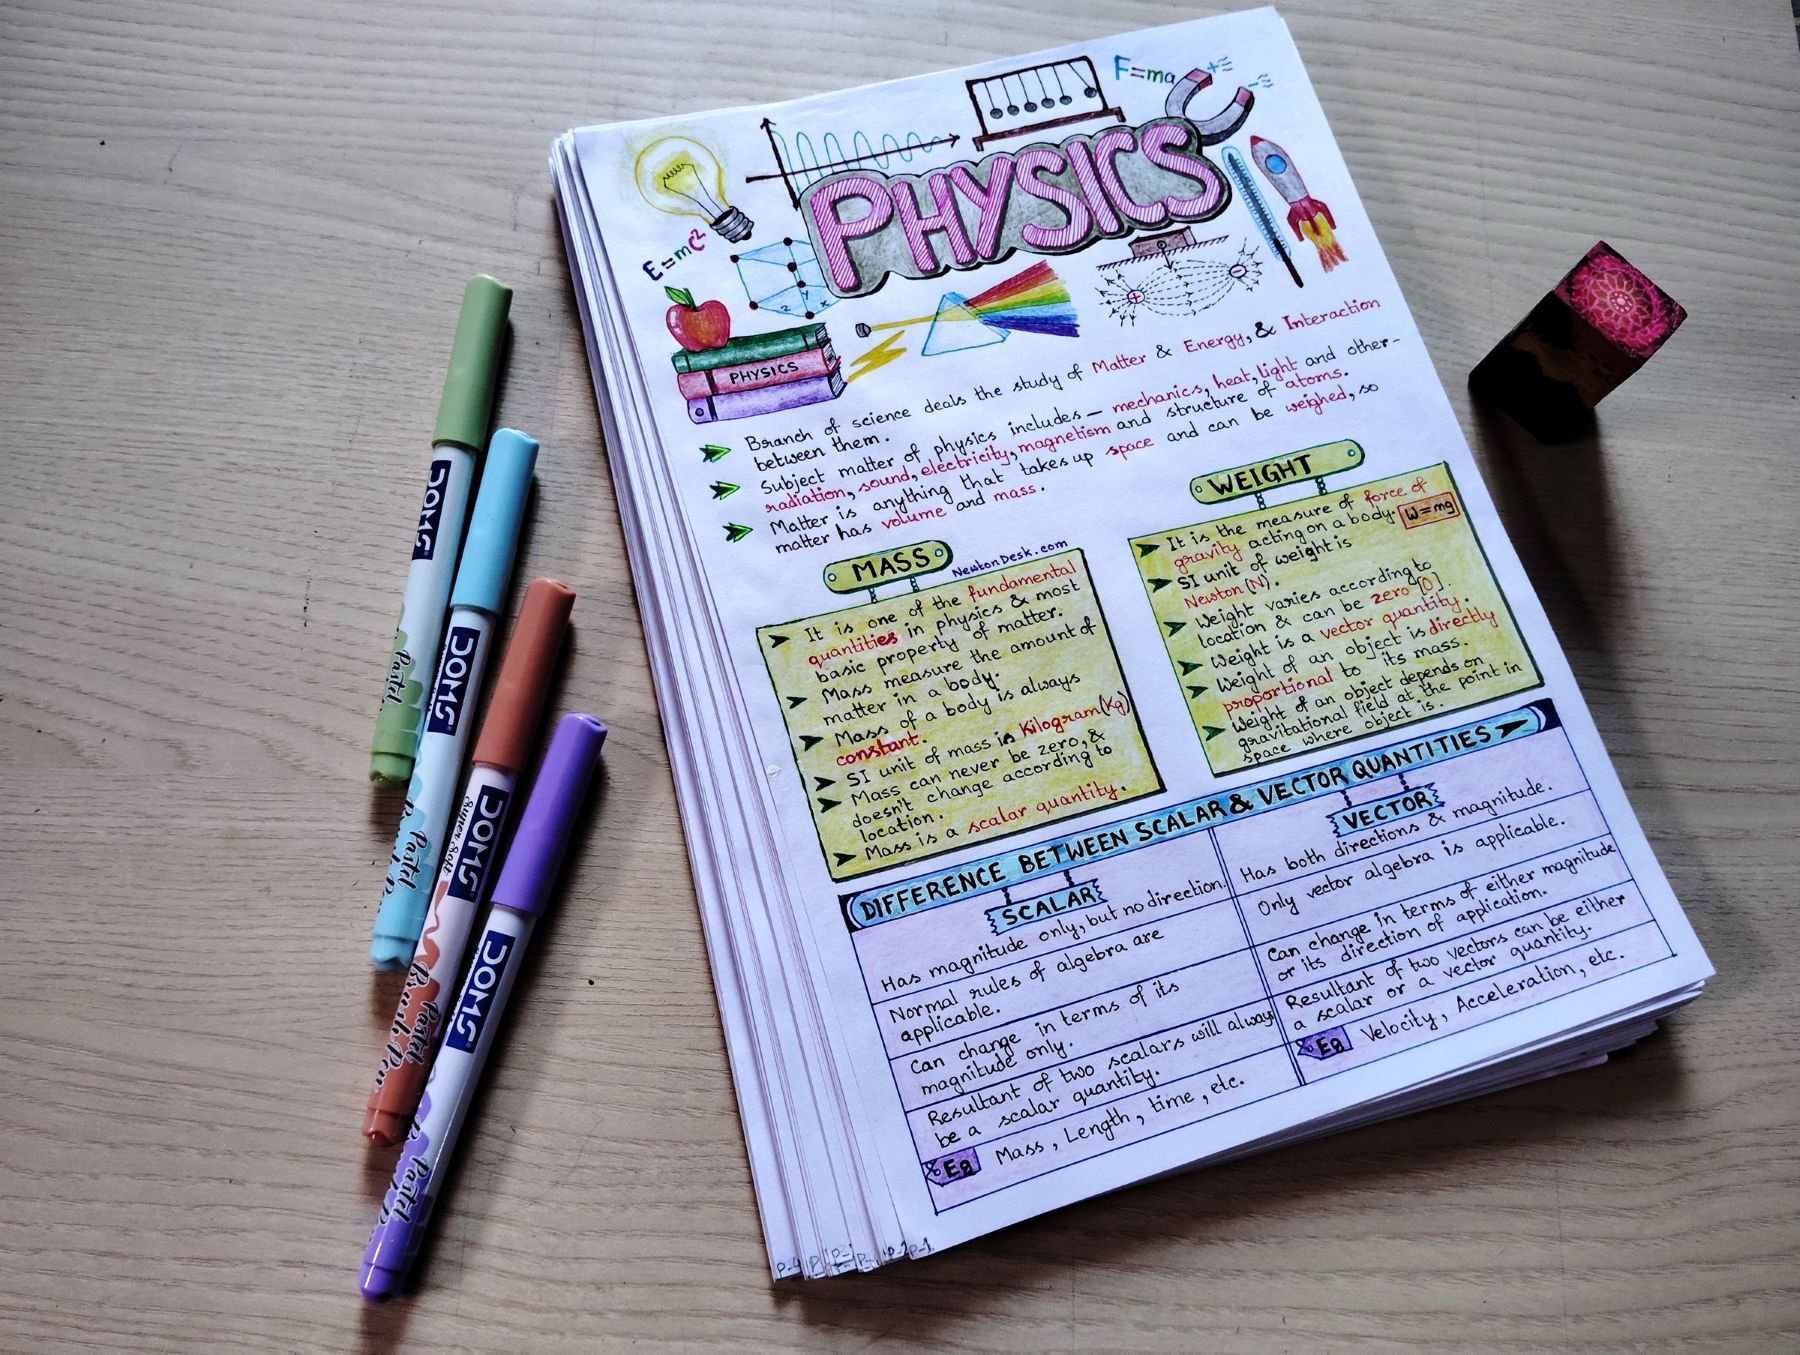 F=ma
+
-
PHYSICS
E=mc²
Z Y X
+
-
PHYSICS
Branch of science deals the study of Matter & Energy, & Interaction
between them.
Subject matter of physics includes — mechanics, heat, light and other-
radiation, sound, electricity, magnetism and structure of atoms.
Matter is anything that takes up space and can be weighed, so
matter has volume and mass.
MASS
NewtonDesk.com
It is one of the fundamental
quantities in physics & most
basic property of matter.
Mass measure the amount of
matter in a body.
Mass of a body is always
constant.
SI unit of mass is Kilogram(Kg)
Mass can never be zero, &
doesn't change according to
location.
Mass is a scalar quantity.
WEIGHT
It is the measure of force of
gravity acting on a body.
W=mg
SI unit of weight is
Newton (N).
Weight varies according to
location & can be zero [0].
Weight is a vector quantity.
Weight of an object is directly
proportional to its mass.
Weight of an object depends on
gravitational field at the point in
space where object is.
DIFFERENCE BETWEEN SCALAR & VECTOR QUANTITIES
SCALAR
Has magnitude only, but no direction.
Normal rules of algebra are
applicable.
Can change in terms of its
magnitude only.
Resultant of two scalars will always
be a scalar quantity.
Eg Mass, Length, time, etc.
VECTOR
Has both directions & magnitude.
Only vector algebra is applicable.
Can change in terms of either magnitude
or its direction of application.
Resultant of two vectors can be either
a scalar or a vector quantity.
Eg Velocity, Acceleration, etc.
P-4
P-2
P-1
DOMS
Pastel
DOMS
Pastel
DOMS
Super Soft
Pastel
Brush Pen
DOMS
Pastel